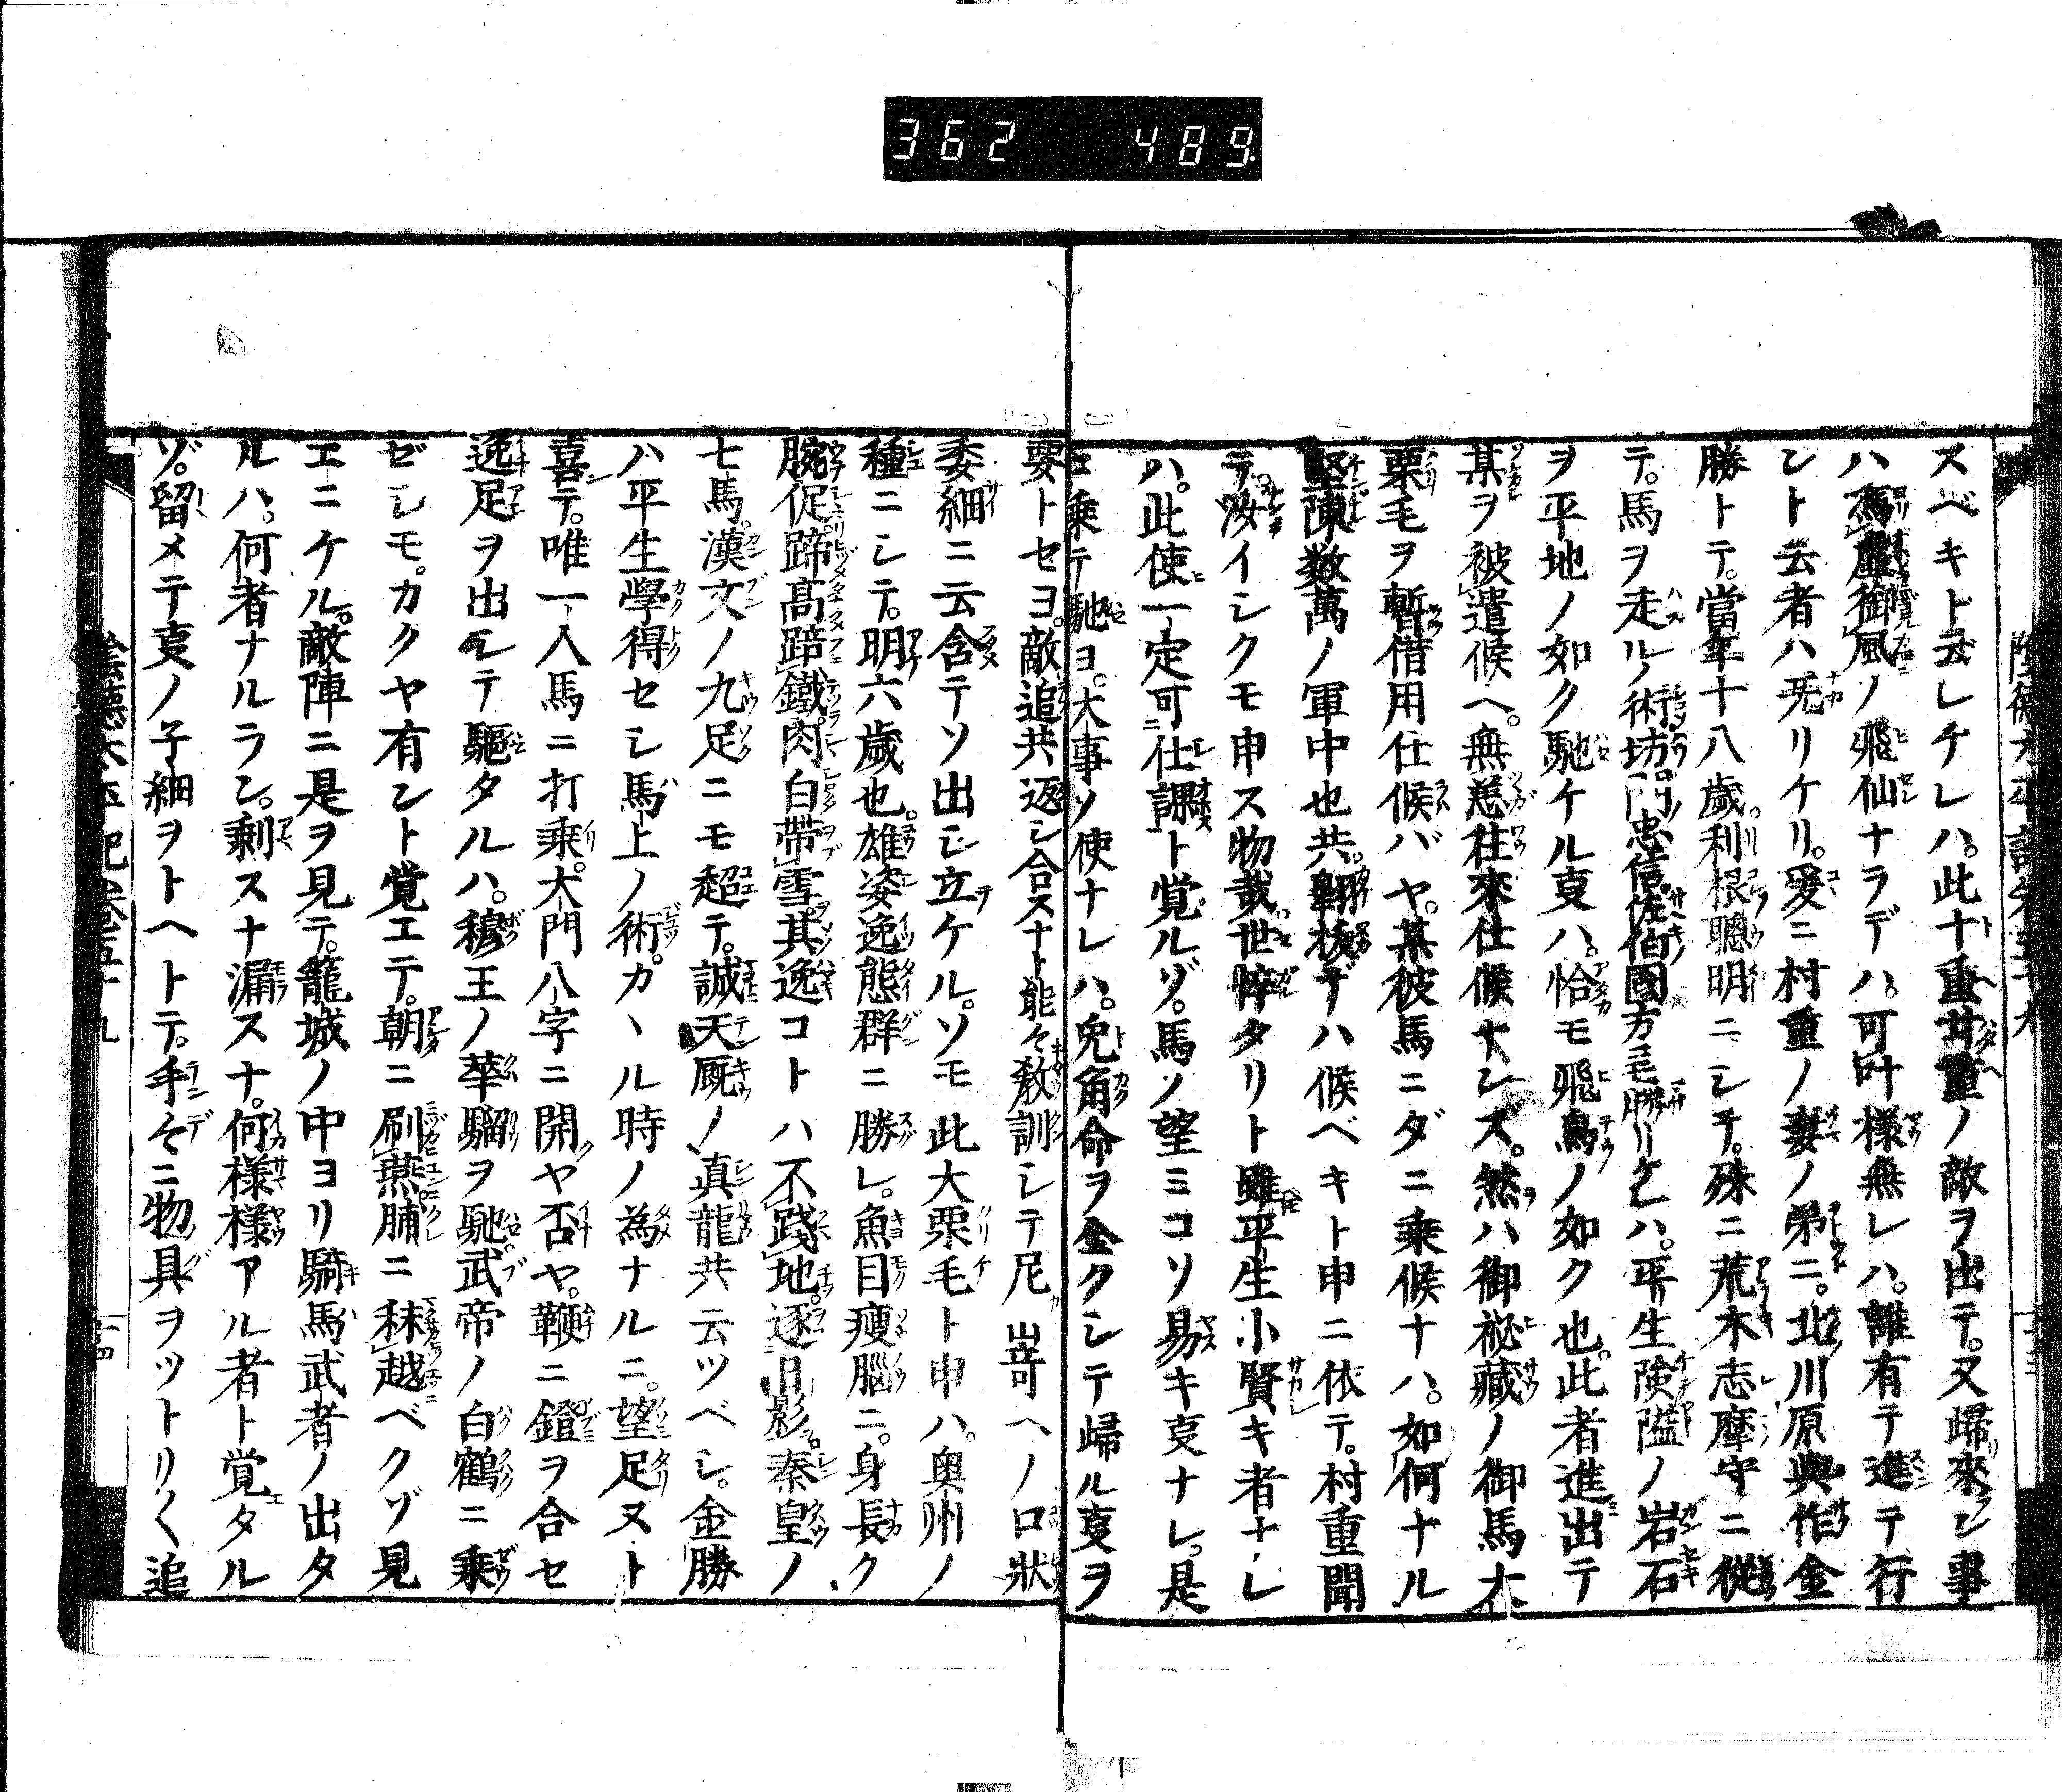 362 489
スベキト云レケレハ。此十重廿重ノ敵ヲ出テ。又歸來ン事
ハ馮虚御風ノ飛仙ナラデハ。可叶様無レハ。誰有テ進テ行
ント云者ハ无リケリ。爰ニ村重ノ妻ノ弟ニ。北川原與作金
勝トテ。當年十八歳。利根聰明ニシテ。殊ニ荒木志摩守ニ從
テ。馬ヲ走ル術坊門忠信。佐伯國方ニモ勝リケレハ。平生険隘ノ岩石
ヲ平地ノ如ク馳ケル叓ハ。恰モ飛鳥ノ如ク也。此者進出テ
某ヲ被遣候ヘ。無恙往來仕候ナンズ。然ハ御祕藏ノ御馬大
栗毛ヲ暫借用仕候バヤ。某彼馬ニダニ乗候ナハ。如何ナル
堅陳数萬ノ軍中也共。翻棭デハ候ベキト申ニ依テ。村重聞
テ。汝イシクモ申ス物哉。世悴タリト雖平生小賢キ者ナレ
ハ。此使一定可仕課ト覚ルゾ。馬ノ望ミコソ易キ叓ナレ。是
ニ乗テ馳ヨ。大事ノ使ナレハ。兎角命ヲ全クシテ歸ル叓ヲ
要トセヨ。敵追共返シ合スナト能々教訓シテ尼﨑ヘノ口狀
委細ニ云含テソ出シ立ケル。ソモ此大栗毛ト申ハ。奥州ノ
種ニシテ。明六歳也。雄姿逸態群ニ勝レ。魚目痩腦ニ。身長ク
腕促蹄高踣鐵肉白帯雪。其逸コトハ不踐地。逐日影。秦皇ノ
七馬。漢文ノ九足ニモ超テ。誠天厩ノ真龍共云ツベシ。金勝
ハ平生學得セシ馬上ノ術。カヽル時ノ為ナルニ。望足ヌト
喜テ。唯一人馬ニ打乗。大門八字ニ開ヤ否ヤ。鞭ニ鐙ヲ合セ
逸足ヲ出シテ驅タルハ。穆王ノ華騮ヲ馳。武帝ノ白鶴ニ乗
ゼシモ。カクヤ有ント覚エテ。朝ニ刷燕。脯ニ秣越ベクゾ見
エニケル。敵陣ニ是ヲ見テ。籠城ノ中ヨリ騎馬武者ノ出タ
ルハ。何者ナルラン。剰スナ漏スナ。何様様アル者ト覚タル
ゾ。留メテ叓ノ子細ヲトヘトテ。手々ニ物具ヲットリ〳〵追
陰德太平記卷五十九